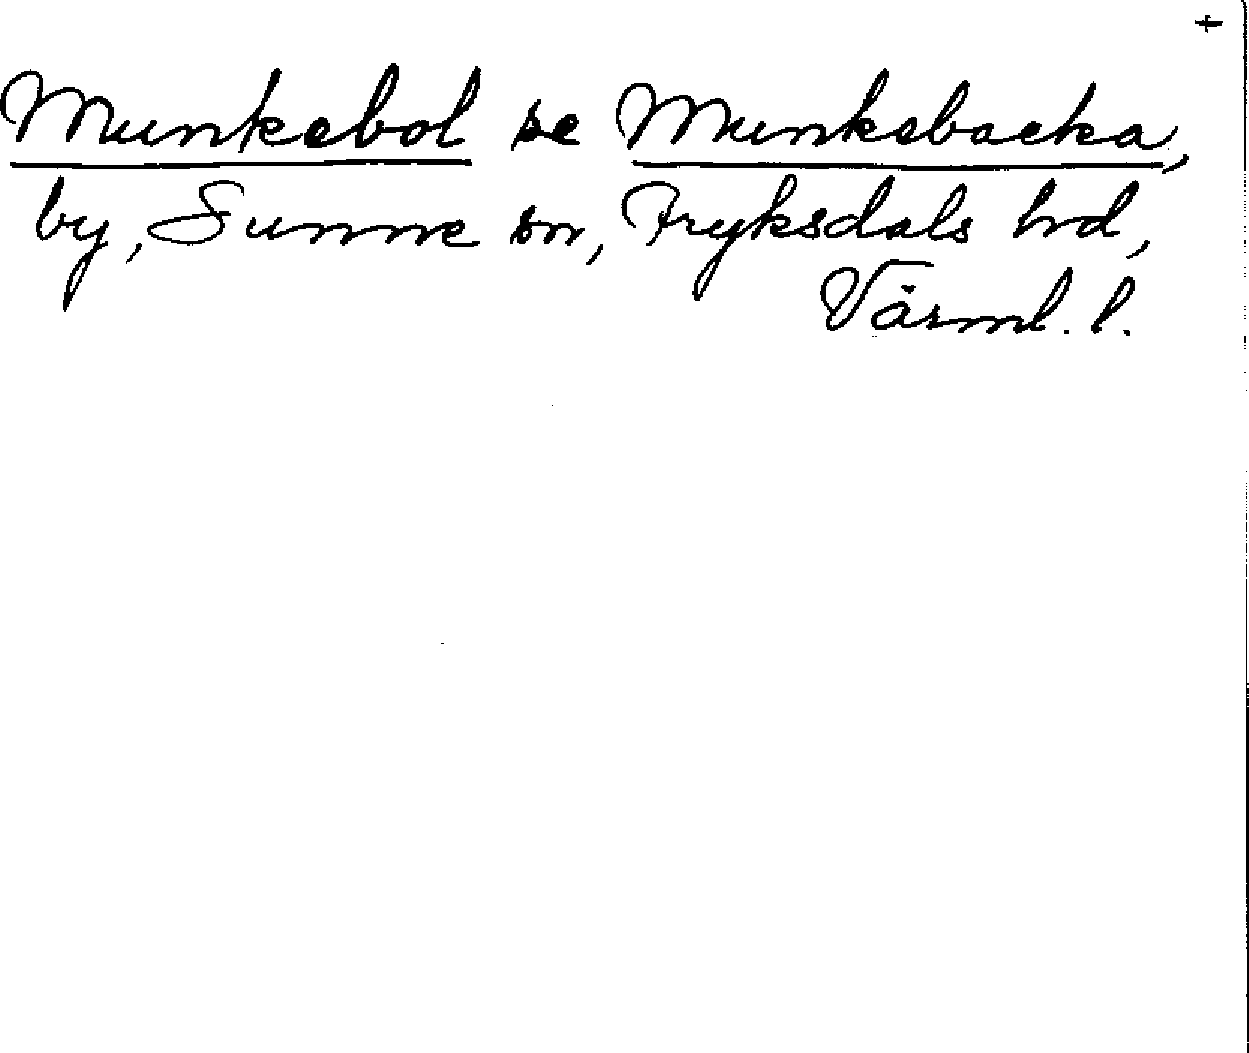 +
Munkebol se Munkebacka,
by, Sunne sn, Fryksdals hd,
Värml. l.